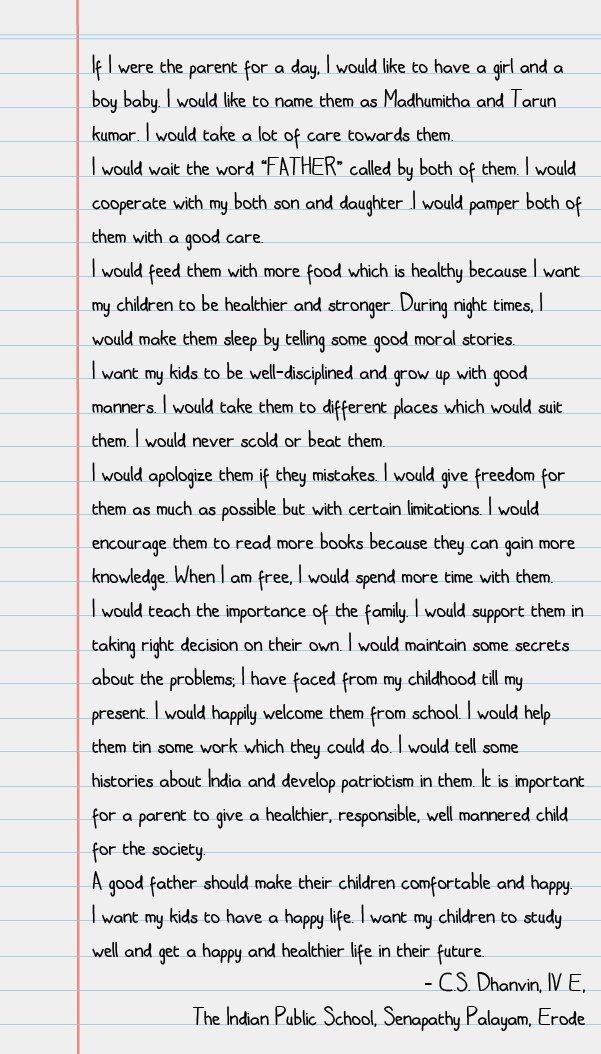 If I were the parent for a day, I would like to have a girl and a
boy baby. I would like to name them as Madhumitha and Tarun
kumar. I would take a lot of care towards them.
I would wait the word "FATHER" called by both of them. I would
cooperate with my both son and daughter .I would pamper both of
them with a good care.
I would feed them with more food which is healthy because I want
my children to be healthier and stronger. During night times, I
would make them sleep by telling some good moral stories.
I want my kids to be well-disciplined and grow up with good
manners. I would take them to different places which would suit
them. I would never scold or beat them.
I would apologize them if they mistakes. I would give freedom for
them as much as possible but with certain limitations. I would
encourage them to read more books because they can gain more
knowledge. When I am free, I would spend more time with them.
I would teach the importance of the family. I would support them in
taking right decision on their own. I would maintain some secrets
about the problems; I have faced from my childhood till my
present. I would happily welcome them from school. I would help
them tin some work which they could do. I would tell some
histories about India and develop patriotism in them. It is important
for a parent to give a healthier, responsible, well mannered child
for the society.
A good father should make their children comfortable and happy.
I want my kids to have a happy life. I want my children to study
well and get a happy and healthier life in their future.
- C.S. Dhanvin, IV E,
The Indian Public School, Senapathy Palayam, Erode